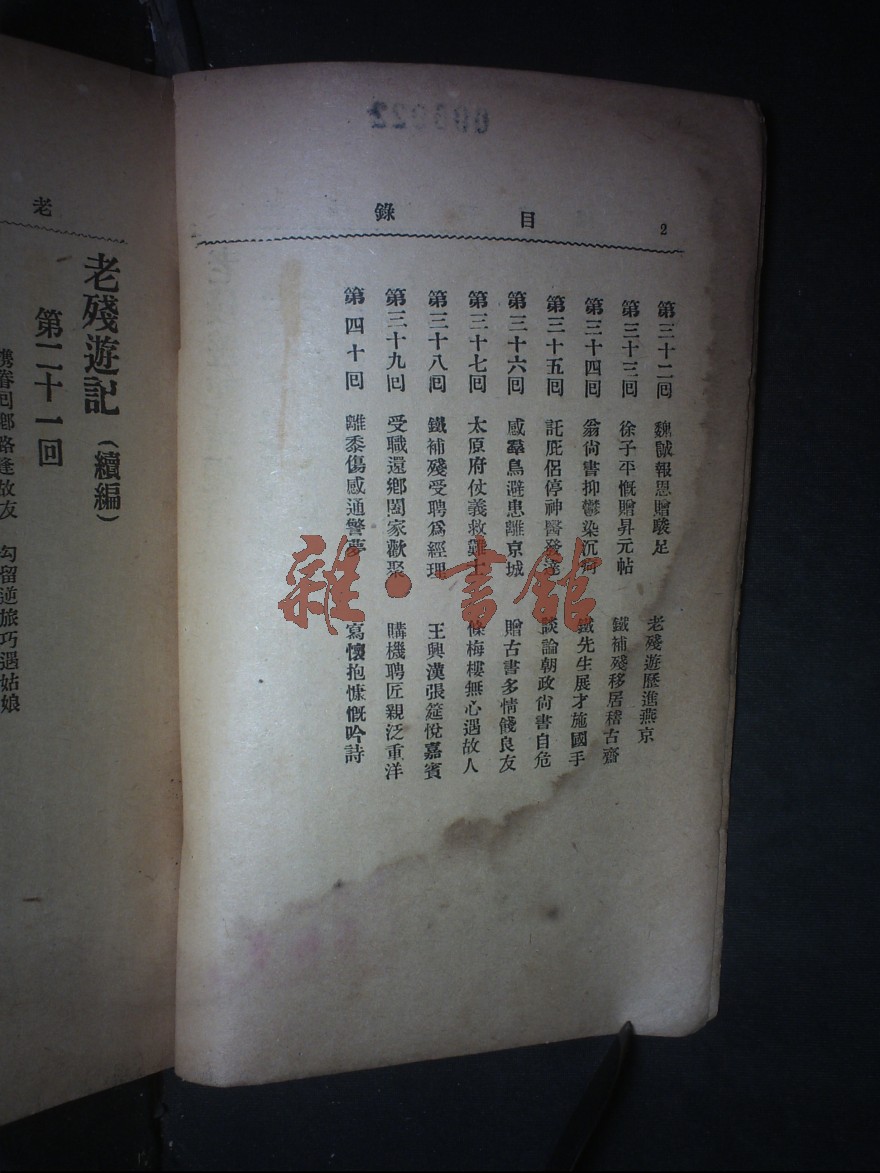 603022
目錄
2
第三十二回 魏誠報恩贈駿足 老殘遊歷進燕京
第三十三回 徐子平慨贈昇元帖 鐵補殘移居稽古齋
第三十四回 翁尙書抑鬱染沉疴 鐵先生展才施國手
第三十五回 託庇侶停神醫發達 談論朝政尙書自危
第三十六回 感羣鳥避患離京城 贈古書多情餞良友
第三十七回 太原府仗義救難士 條梅樓無心遇故人
第三十八回 鐵補殘受聘爲經理 王興漢張筵悅嘉賓
第三十九回 受職還鄉閤家歡聚 購機聘匠親泛重洋
第四十回 離黍傷感通警夢 寫懷抱慷慨吟詩
老
老殘遊記(續編)
第二十一回
攜眷回鄉路逢故友 勾留逆旅巧遇姑娘
雜·書館